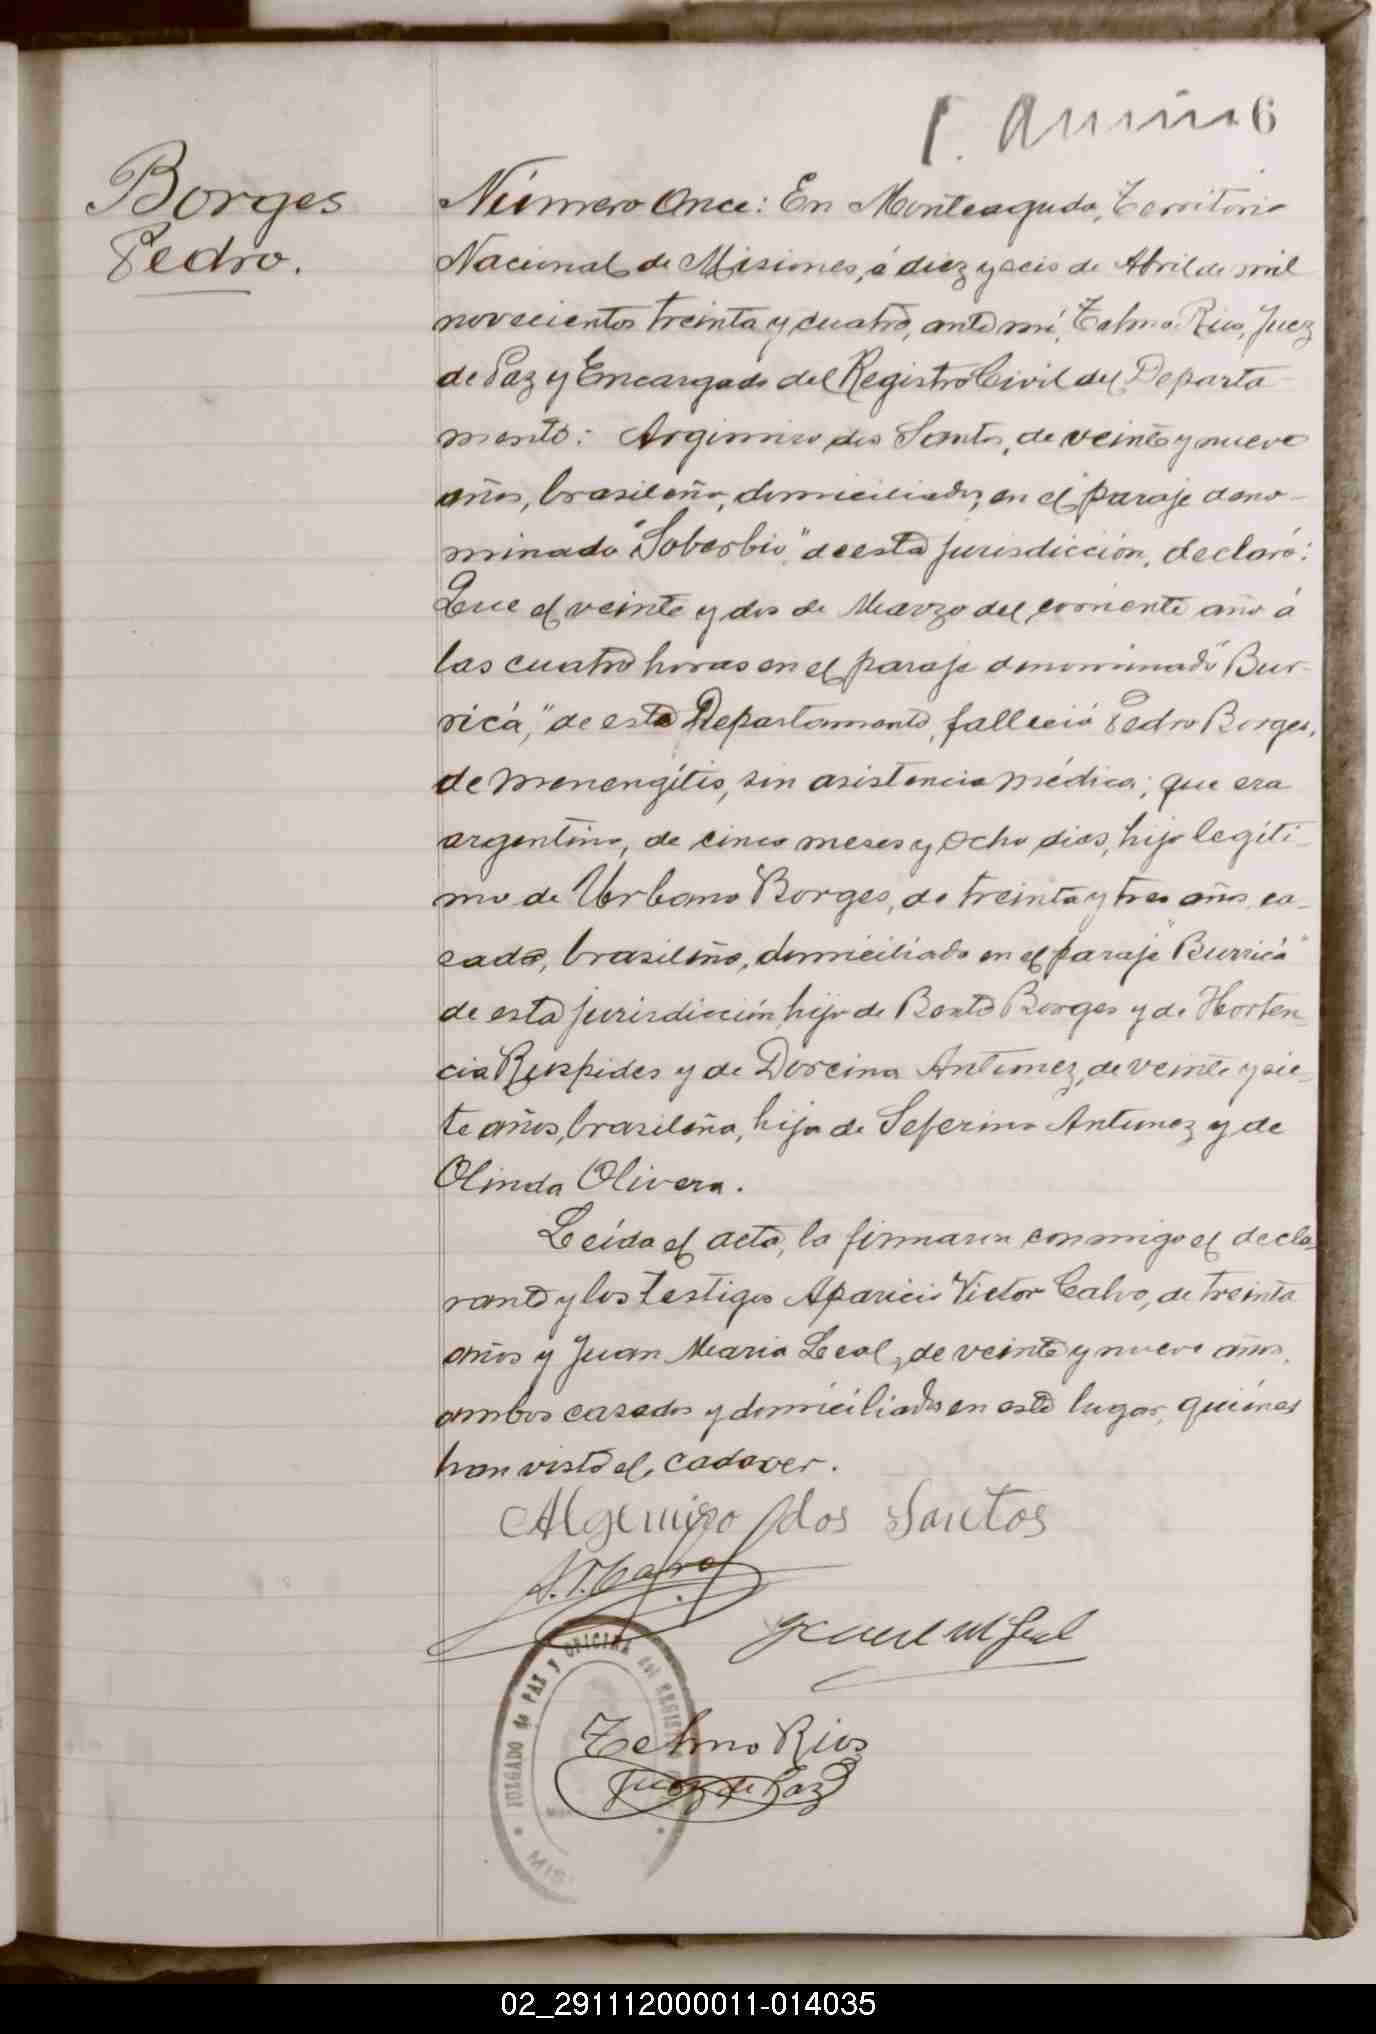 6
Borges
Pedro.
Número Once: En Monteagudo, Territorio
Nacional de Misiones, á diez y seis de Abril de mil
novecientos treinta y cuatro, ante mí, Telmo Rios, Juez
de Paz y Encargado del Registro Civil del Departa-
mento: Argimiro dos Santos, de veinte y nueve
años, brasileño, domiciliado, en el paraje deno-
minado "Soberbio," de esta jurisdicción, declaró:
Que el veinte y dos de Marzo del corriente año á
las cuatro horas en el paraje denominado "Bur-
ricá," de este Departamento, falleció Pedro Borges,
de menengitis, sin asistencia médica; que era
argentino, de cinco meses y ocho dias, hijo legiti-
mo de Urbano Borges, de treinta y tres años, ca-
cado, brasileño, domiciliado en el paraje "Burricá"
de esta jurisdicción, hijo de Bento Borges y de Horten-
cia Ruspides y de Dorcina Antunez, de veinte y sie-
te años, brasileña, hija de Seferino Antunez y de
Olinda Olivera.
Leída el acta, la firmaron conmigo el decla-
rante y los testigos Aparicio Victor Calvo, de treinta
años y Juan Maria Leal, de veinte y nueve años,
ambos casados y domiciliados en este lugar, quiénes
han visto el cadaver.
Algemiro dos Santos
Juan M Leal
JUZGADO de PAZ y OFICINA del REGIST
Telmo Rios
Juez de Paz
MIS
02_291112000011-014035